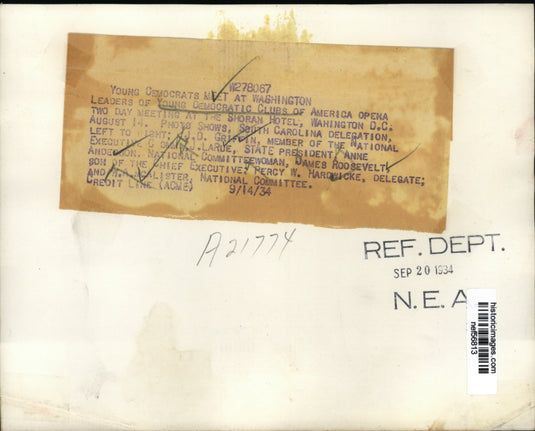 W278067
YOUNG DEMOCRATS MEET AT WASHINGTON
LEADERS OF YOUNG DEMOCRATIC CLUBS OF AMERICA OPENA
TWO DAY MEETING AT THE SHORAH HOTEL, WAHINGTON D.C.
AUGUST 14. PHOTO SHOWS, SOUTH CAROLINA DELEGATION,
LEFT TO RIGHT; D. GRIFFIN, MEMBER OF THE NATIONAL
EXECUTIVE LARUE, STATE PRESIDENT; ANNE
ANDERSON, NATIONAL COMMITTEEWOMAN, JAMES ROOSEVELT,
SON OF THE CHIEF EXECUTIVE; PERCY W. HARDWICKE, DELEGATE;
AND NATIONAL COMMITTEE.
CREDIT LINE (ACME) 9/14/34
A21774
REF. DEPT.
SEP 20 1934
N. E. A.
historicimages.com
nef56813